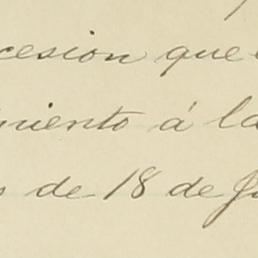 cesion que
miento á la
s de 18 de Ju